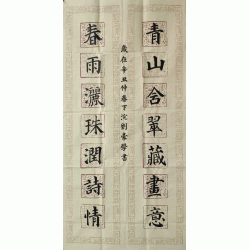 青山含翠藏畫意
春雨灑珠潤詩情
歲在辛丑仲春下浣劉豪學書